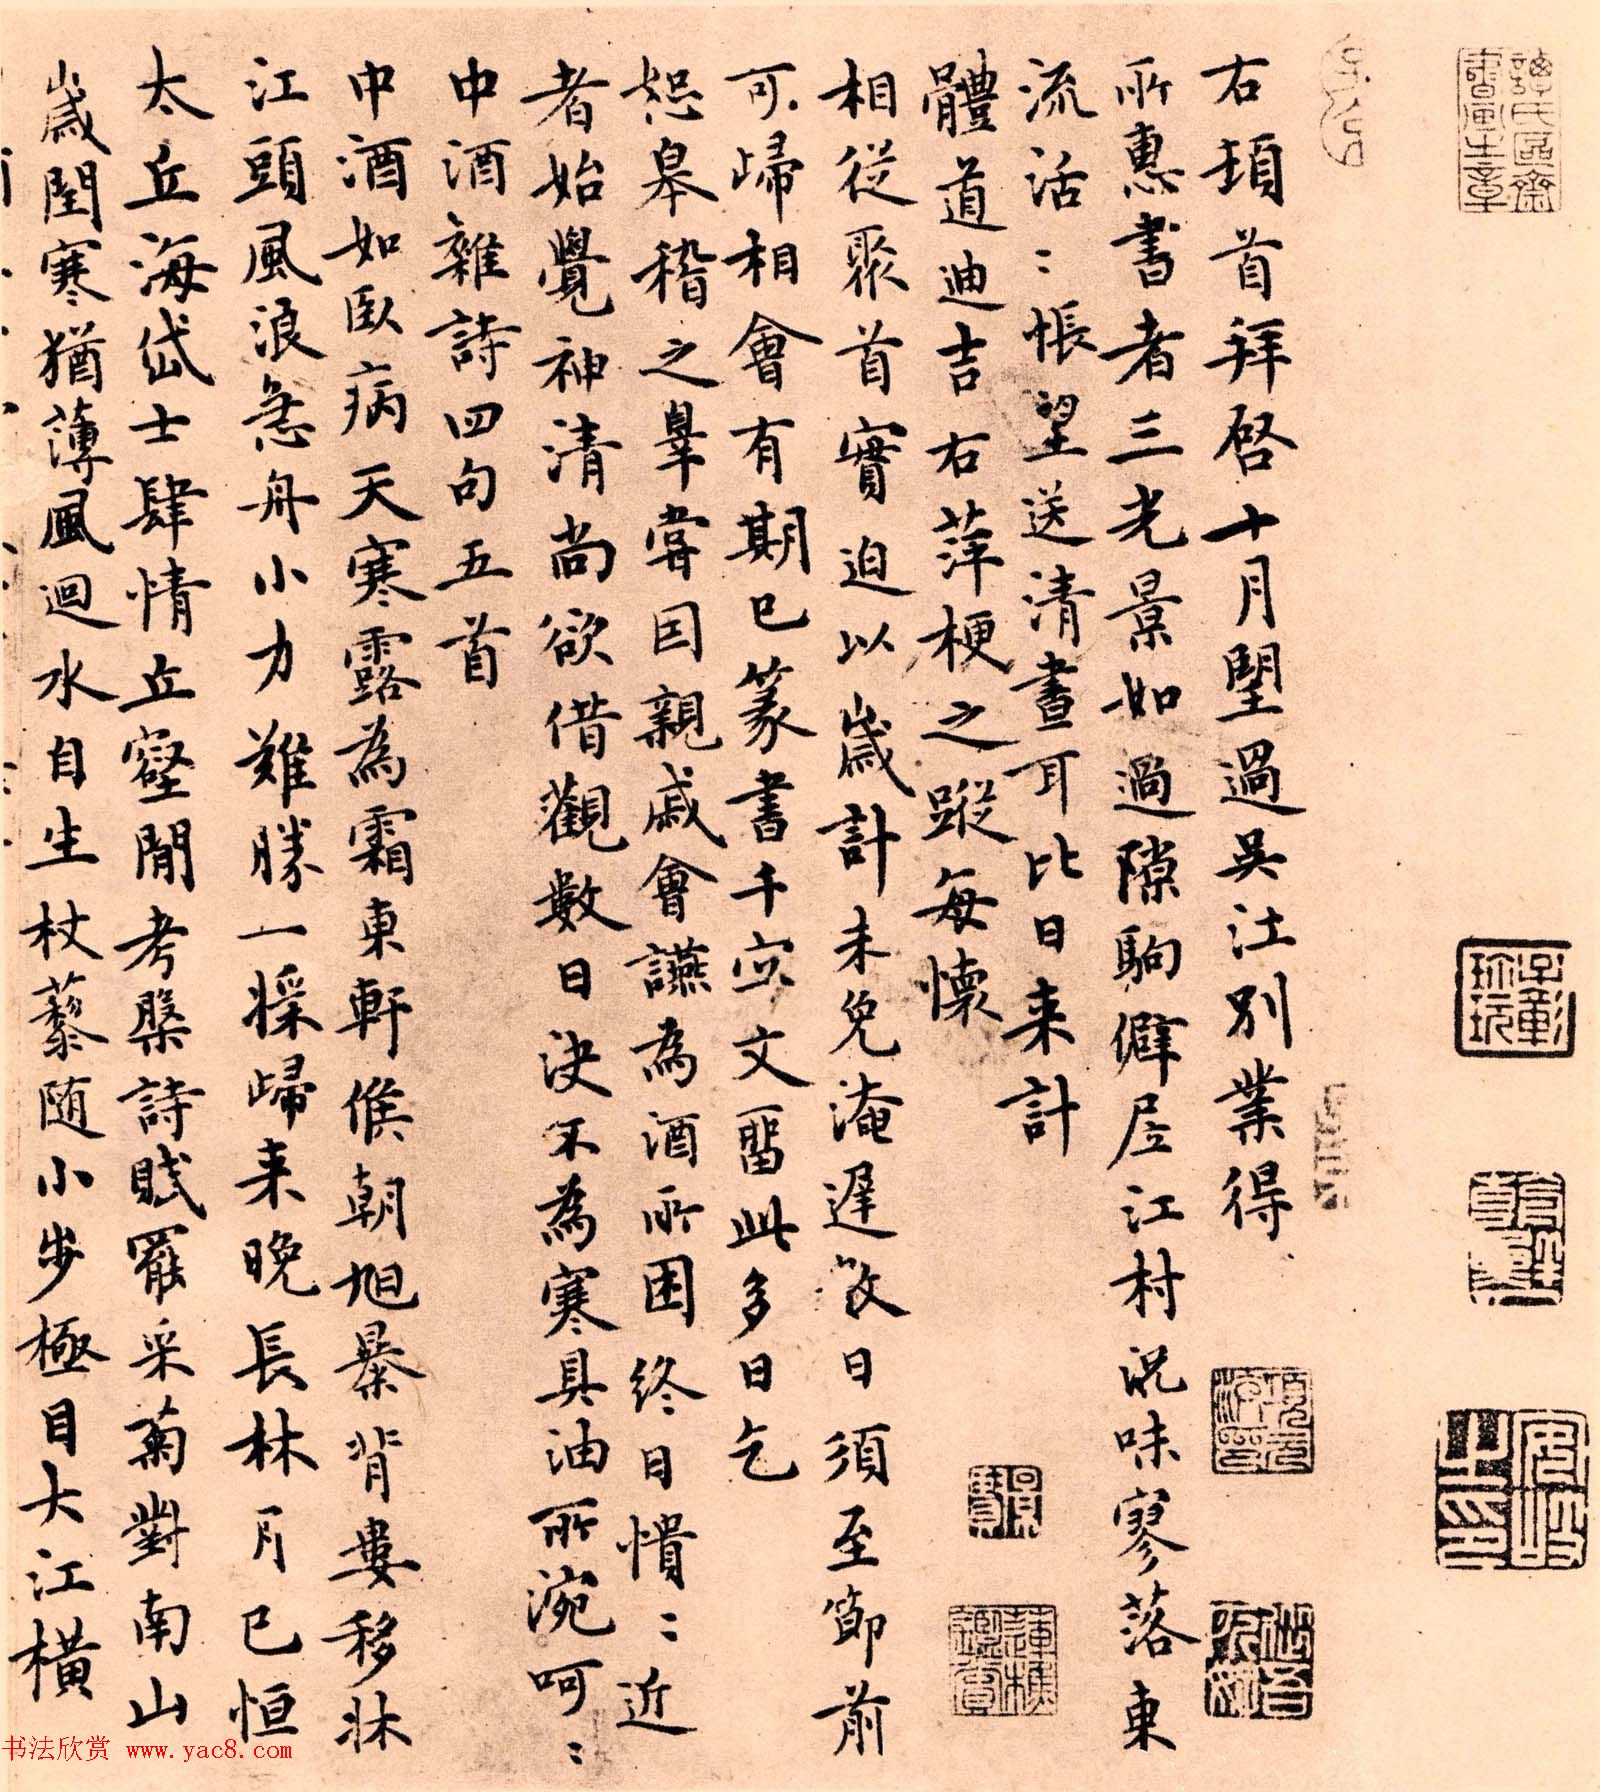 右頓首拜啓十月閏過吳江別業得
所惠書者三光景如過隙駒僻居江村況味寥落東
流活〻悵望送清晝耳比日来計
體道迪吉右萍梗之蹤每懷
相從聚首實迫以歲計未免淹遲数日須至節前
可歸相會有期已篆書千字文留此多日乞
恕辜稽之辜嘗因親戚會讌為酒所困終日憒〻近
者始覺神清尚欲借觀數日決不為寒具油所涴呵〻
中酒雜詩四句五首
中酒如臥病天寒露為霜東軒候朝旭暴背婁移牀
江頭風浪急舟小力難勝一採歸来晚長林月已恒
太丘海岱士肆情丘壑閒考槃詩賦罷采菊對南山
歲閏寒猶薄風迴水自生杖藜随小步極目大江橫
书法欣赏 www.yac8.com